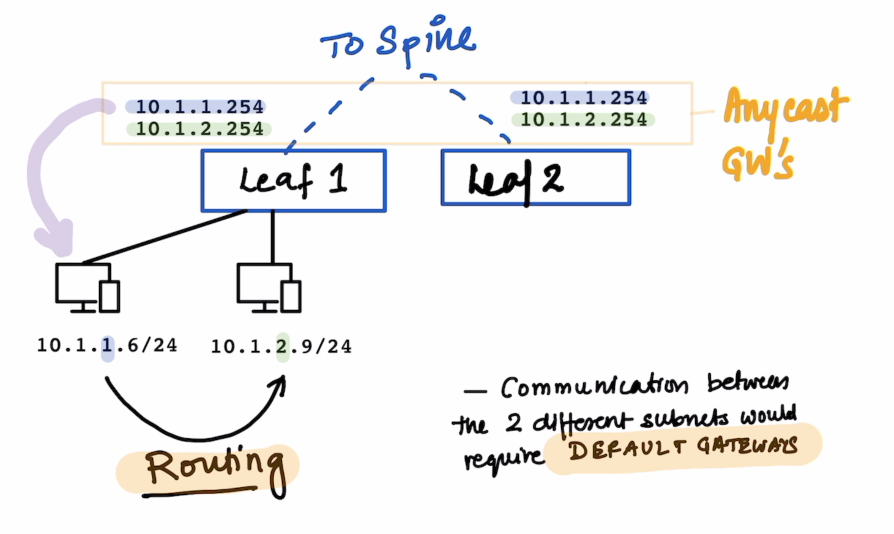 To Spine
10.1.1.254
10.1.2.254
10.1.1.254
10.1.2.254
Anycast
GW's
Leaf 1
Leaf 2
10.1.1.6/24
10.1.2.9/24
Routing
— Communication between
the 2 different subnets would
require DEFAULT GATEWAYS